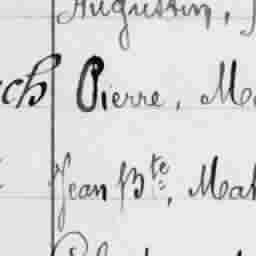 Augustin,
ch Pierre, Ma
Jean Bte, Mah